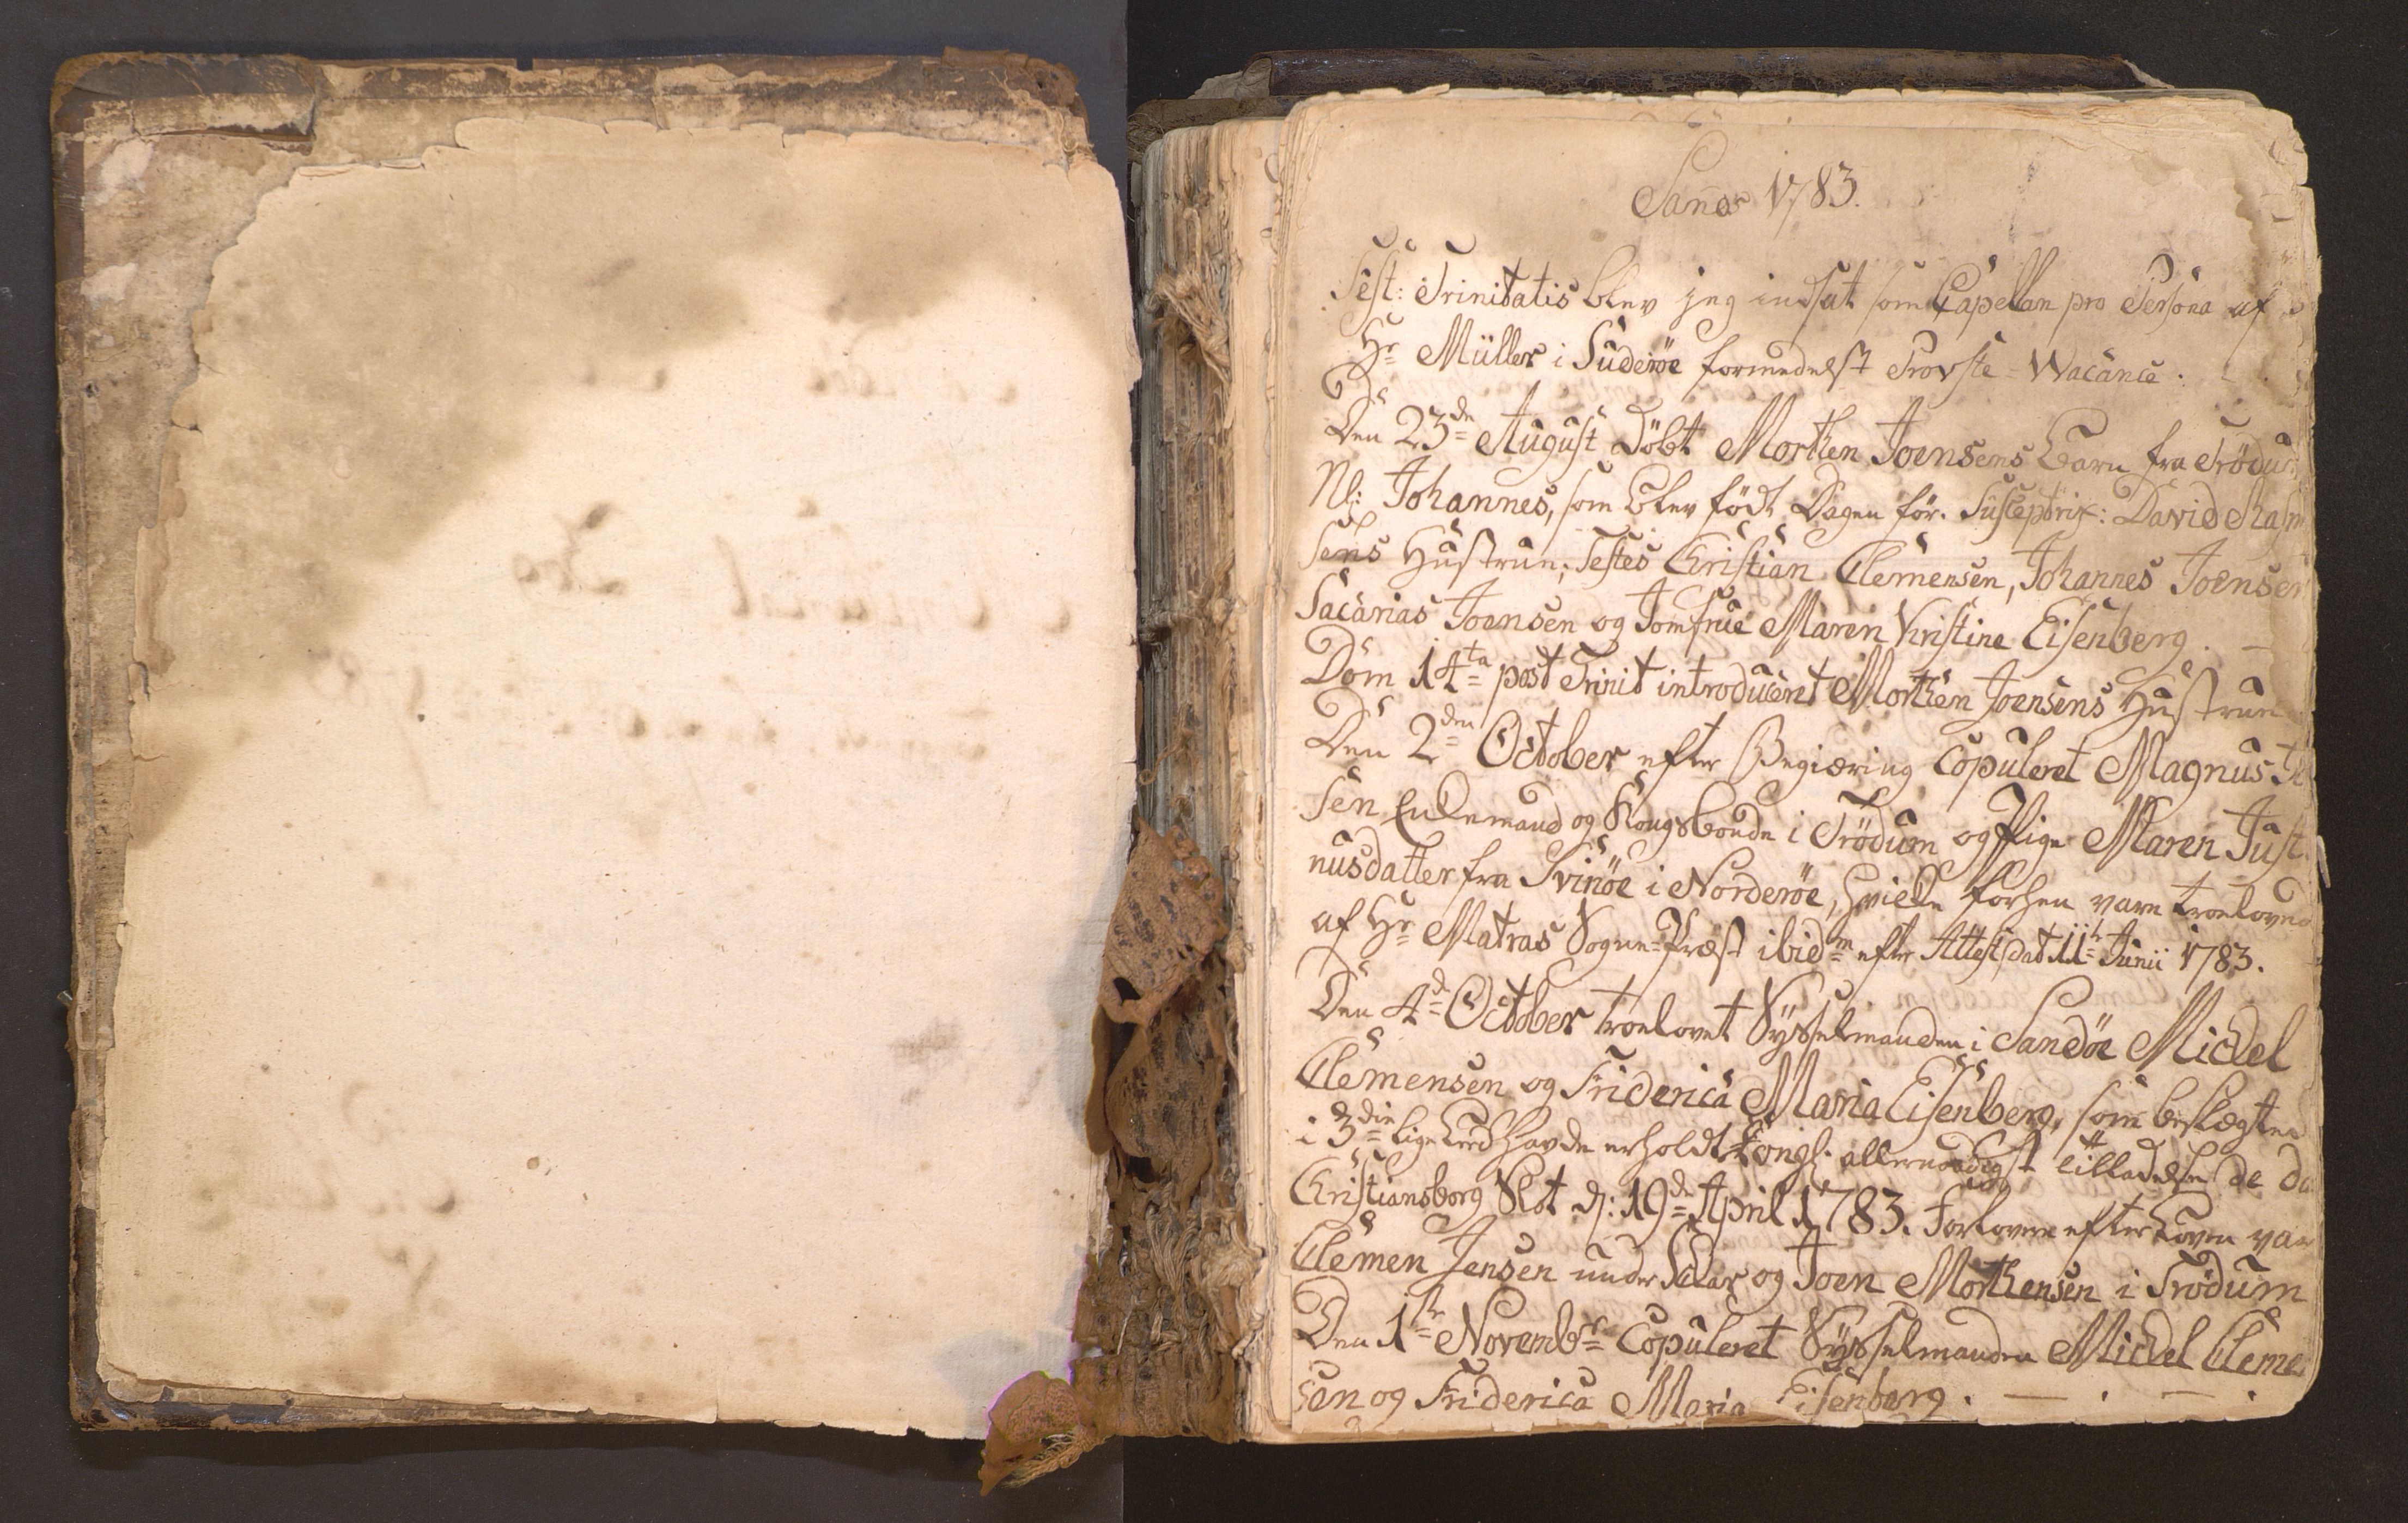 Sanöe 1783.
Fest: Trinitatis blev jeg indsat som Capellan pro Persona af
Hr Müller i Suderöe formedelst Provste=Wacance.
Den 23de August Döbt Morthen Joensens Barn fra Trödum
Nl: Johannes, som blev födt Dagen för. Susceptrix: David Rasm
sens Hustrue; Testes Christian Clemensen, Johannes Joensen
Sacarias Joensen og Jomfrue Maren Kristine Eisenberg. —
Dom 14ta post Trinit introduceret Morthen Joensens Hustrue
Den 2den October efter Begiæring Copuleret Magnus
sen Enkemand og Kongsbonde i Trödum og Pige Maren Just
nusdatter fra Svinöe i Norderöe, hvilke forhen vare troeloved
af Hr Matras Sogne=Præst ibidm efter Attest dat 11te Junii 1783.
Den 4de October troelovet Sysselmanden i Sandöe Michel
Clemensen og Friderica Maria Eisenberg, som beslægted
i 3die lige Leed havde erholdt Kongl. allernaadigst tilladelse de da
Christiansborg Slot d: 19de April 1783. Forlovere efter Loven var
Clemen Jensen under Skar og Joen Morthensen i Trödum
Den 1te Novembr Copuleret Sysselmanden Michel Cleme
sen og Friderica Maria Eisenberg. — . — .